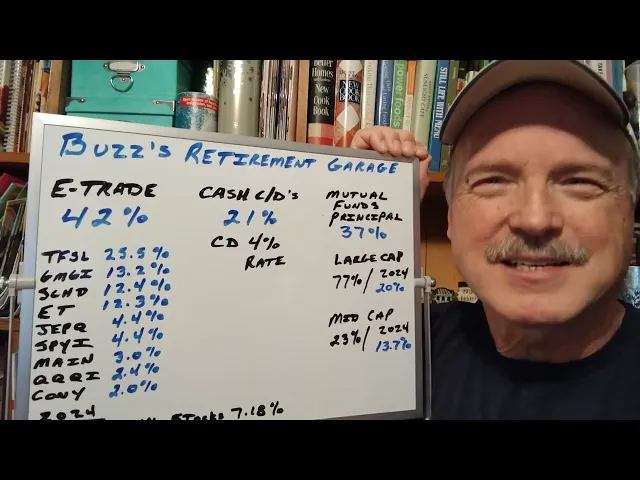 BUZZ'S RETIREMENT GARAGE
E-TRADE
42%
TFSL 25.5%
GMGI 13.2%
SCHD 12.4%
ET 12.3%
JEPQ 4.4%
SPYI 4.4%
MAIN 3.0%
QQQI 2.4%
CONY 2.0%
2024
STOCKS 7.18%
CASH C/D's
21%
CD 4%
RATE
MUTUAL
FUNDS
PRINCIPAL
37%
LARGE CAP
77% / 2024
20%
MID CAP
23% / 2024
13.7%
Better
Homes
New
Cook
Book
power foods
STILL LIFE WITH MENU